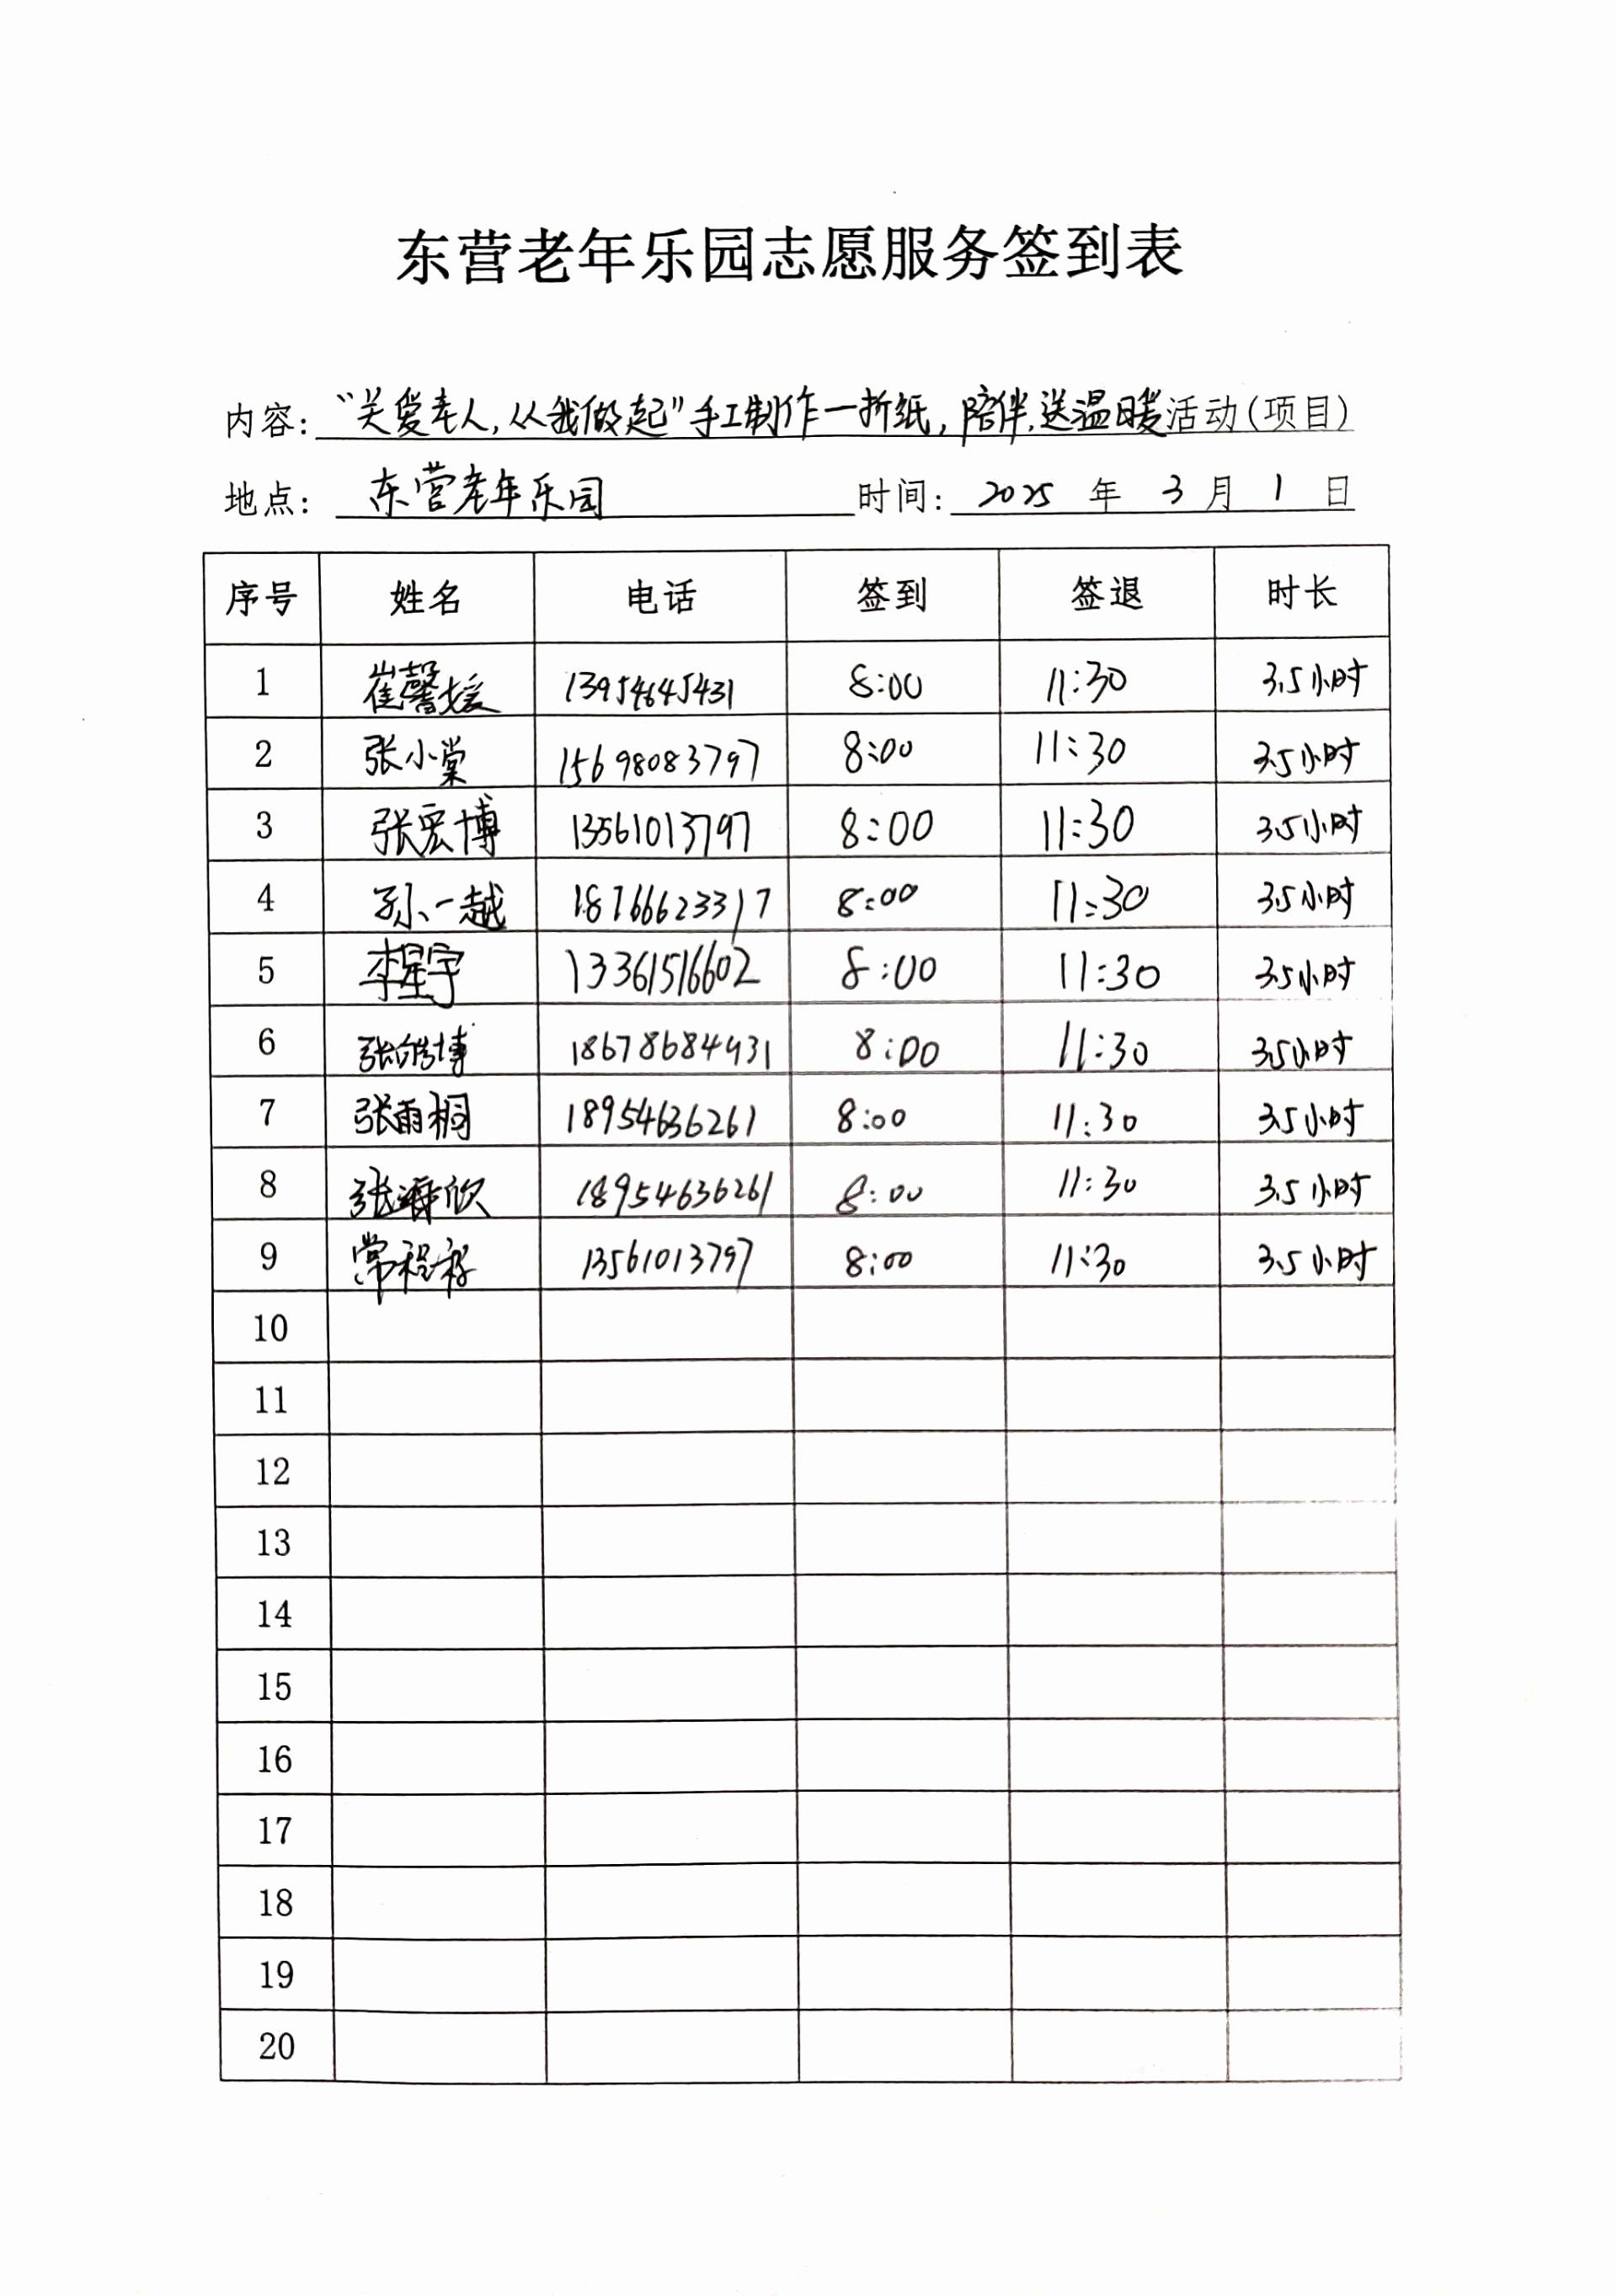 东营老年乐园志愿服务签到表
内容：“关爱老人，从我做起”手工制作一折纸，陪伴，送温暖活动（项目）
地点：东营老年乐园 时间：2025 年 3 月 1 日
序号 姓名 电话 签到 签退 时长
1 崔馨媛 13954645431 8:00 11:30 3.5小时
2 张小棠 15698083797 8:00 11:30 3.5小时
3 张宏博 13561013797 8:00 11:30 3.5小时
4 孙一越 18766623317 8:00 11:30 3.5小时
5 李星宇 13361516602 8:00 11:30 3.5小时
6 张皓博 18678684931 8:00 11:30 3.5小时
7 张雨桐 18954636261 8:00 11:30 3.5小时
8 张 欣 18954636261 8:00 11:30 3.5小时
9 常程 13561013797 8:00 11:30 3.5小时
10
11
12
13
14
15
16
17
18
19
20